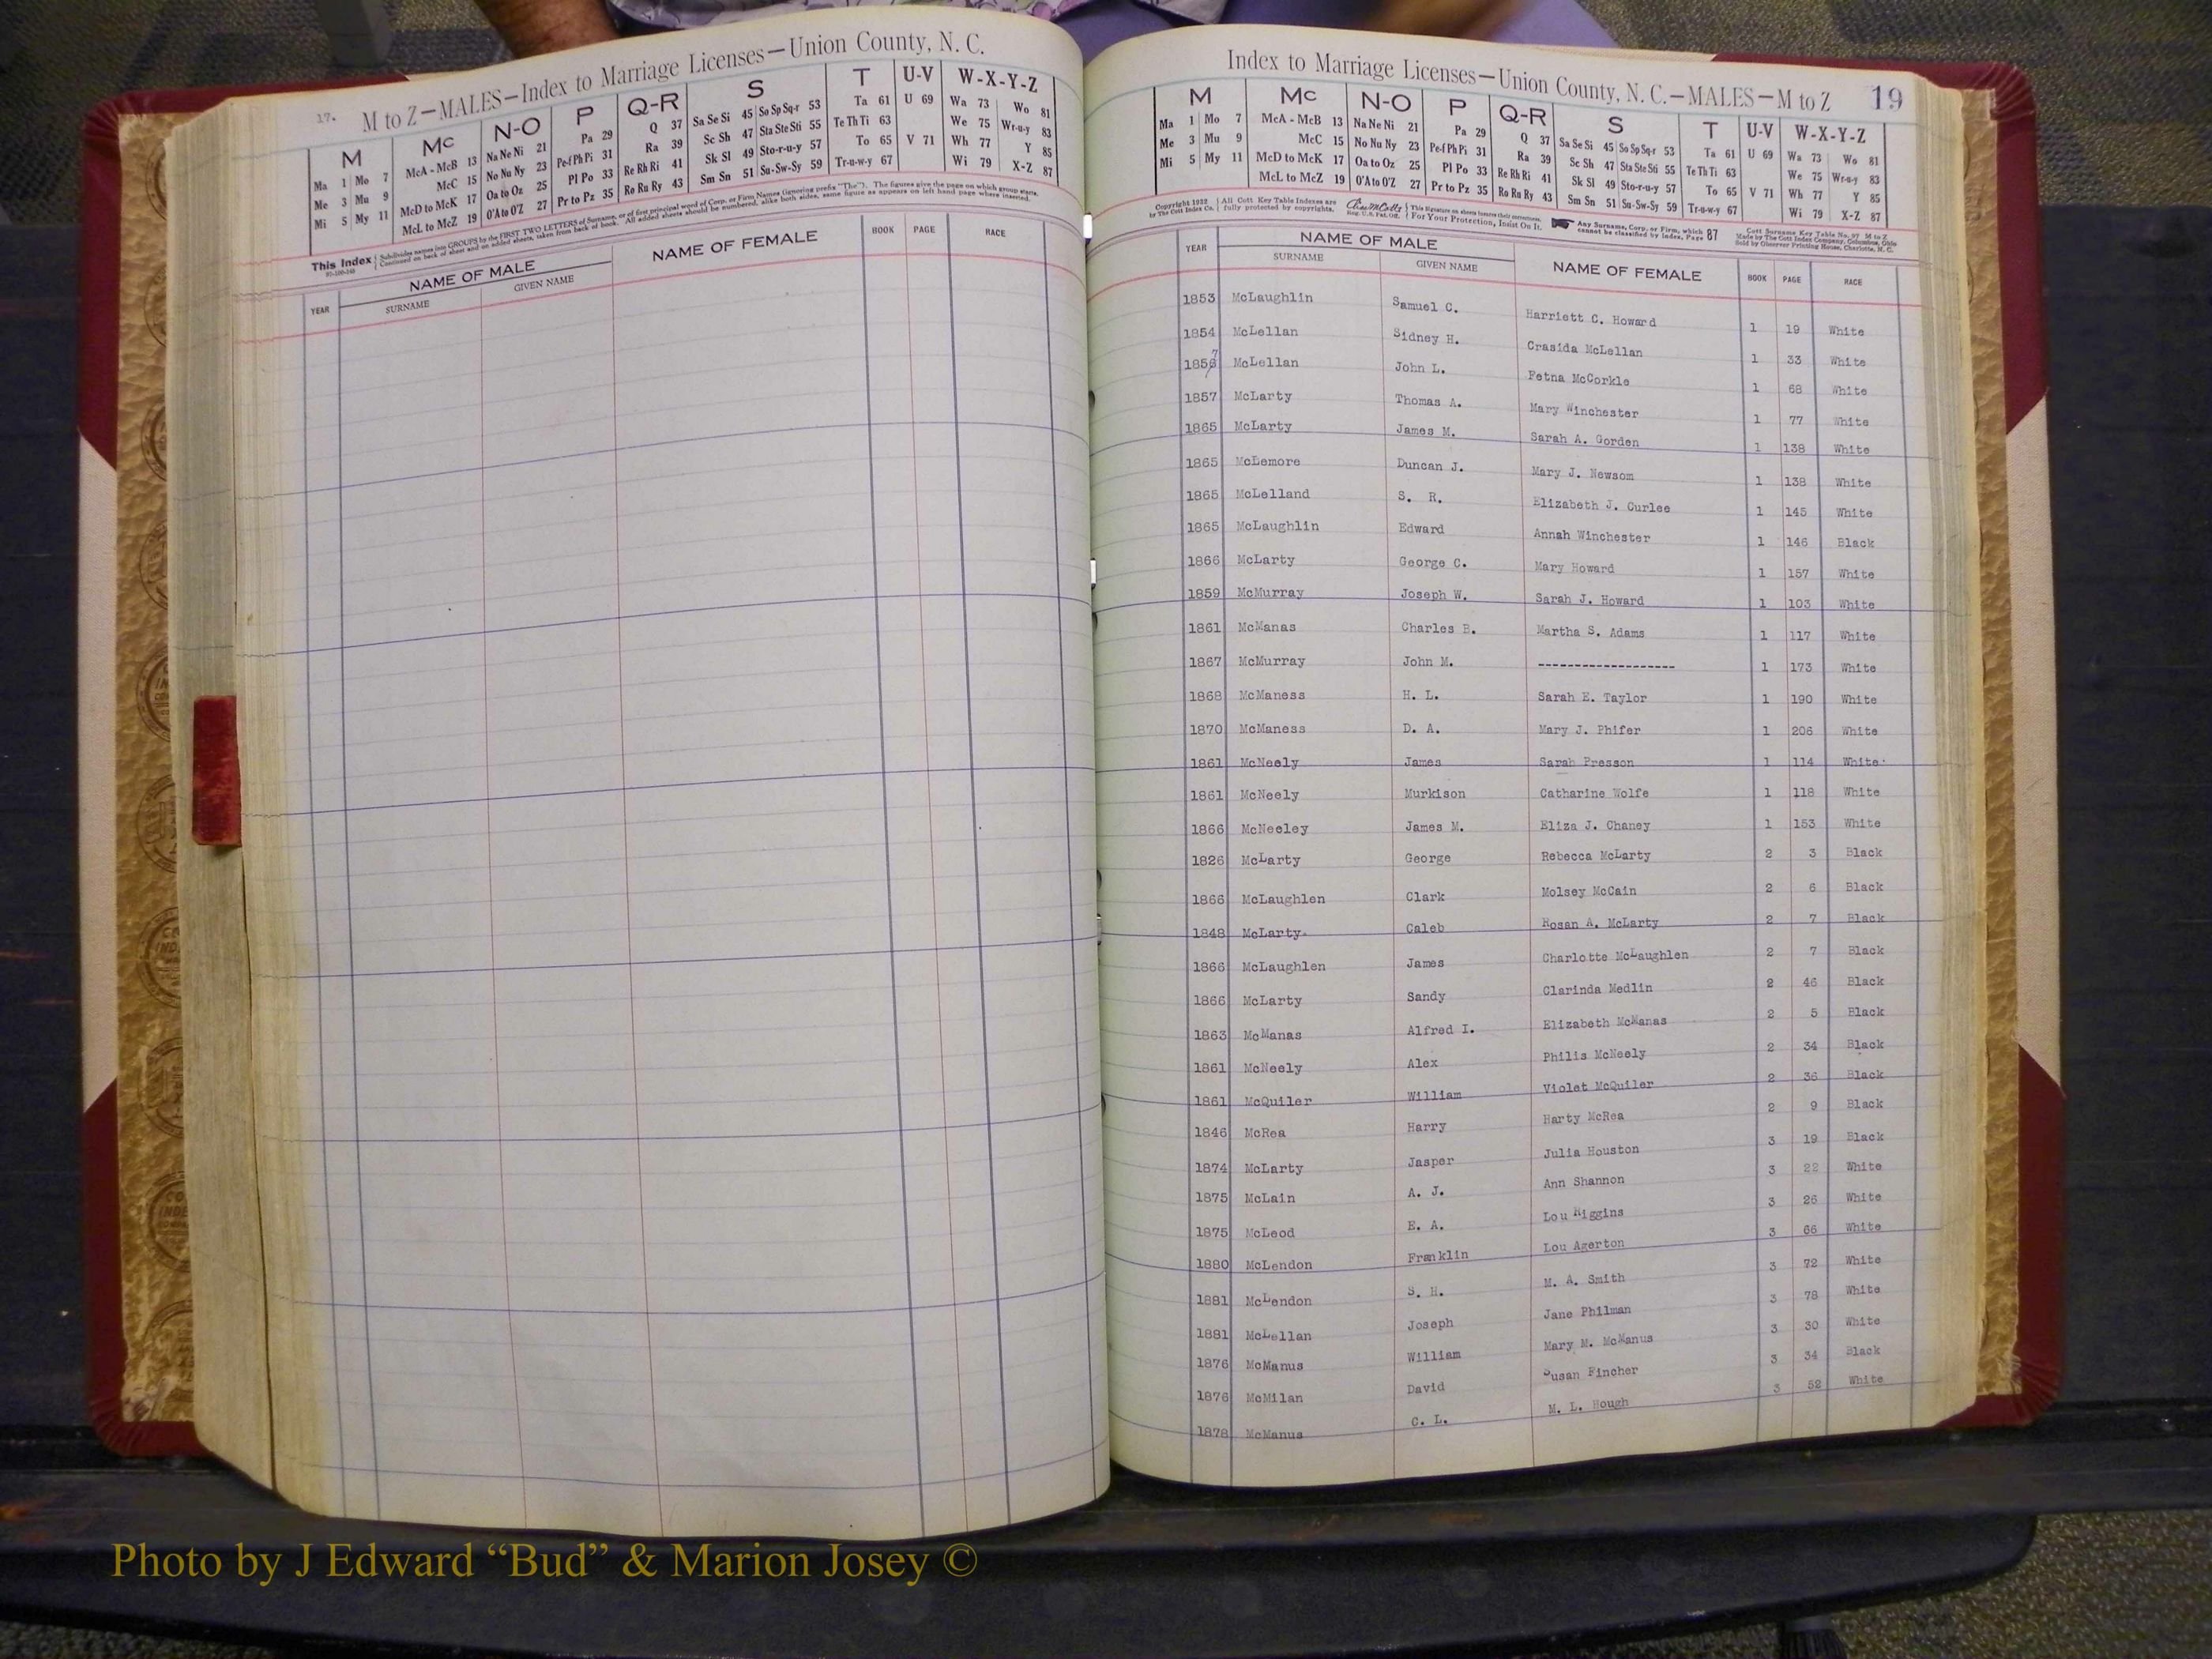 17.
M to Z—MALES—Index to Marriage Licenses—Union County, N. C.
M Mc N-O P Q-R S T U-V W-X-Y-Z
Ma 1 Mo 7 McA - McB 13 Na Ne Ni 21 Pa 29 Q 37 Sa Se Si 45 So Sp Sq-r 53 Ta 61 U 69 Wa 73 Wo 81
Me 3 Mu 9 McC 15 No Nu Ny 23 Pe-f Ph Pi 31 Ra 39 Sc Sh 47 Sta Ste Sti 55 Te Th Ti 63 We 75 Wr-u-y 83
Mi 5 My 11 McD to McK 17 Oa to Oz 25 Pl Po 33 Re Rh Ri 41 Sk Sl 49 Sto-r-u-y 57 To 65 V 71 Wh 77 Y 85
McL to McZ 19 O'A to O'Z 27 Pr to Pz 35 Ro Ru Ry 43 Sm Sn 51 Su-Sw-Sy 59 Tr-u-w-y 67 Wi 79 X-Z 87
This Index Subdivides names into GROUPS by the FIRST TWO LETTERS of Surname, or of first principal word of Corp. or Firm Names (ignoring prefix "The"). The figures give the page on which group starts.
Continued on back of sheet and on added sheets, taken from back of book. All added sheets should be numbered, alike both sides, same figure as appears on left hand page where inserted.
YEAR NAME OF MALE NAME OF FEMALE BOOK PAGE RACE
SURNAME GIVEN NAME
Index to Marriage Licenses—Union County, N. C.—MALES—M to Z 19
M Mc N-O P Q-R S T U-V W-X-Y-Z
Ma 1 Mo 7 McA - McB 13 Na Ne Ni 21 Pa 29 Q 37 Sa Se Si 45 So Sp Sq-r 53 Ta 61 U 69 Wa 73 Wo 81
Me 3 Mu 9 McC 15 No Nu Ny 23 Pe-f Ph Pi 31 Ra 39 Sc Sh 47 Sta Ste Sti 55 Te Th Ti 63 We 75 Wr-u-y 83
Mi 5 My 11 McD to McK 17 Oa to Oz 25 Pl Po 33 Re Rh Ri 41 Sk Sl 49 Sto-r-u-y 57 To 65 V 71 Wh 77 Y 85
McL to McZ 19 O'A to O'Z 27 Pr to Pz 35 Ro Ru Ry 43 Sm Sn 51 Su-Sw-Sy 59 Tr-u-w-y 67 Wi 79 X-Z 87
Copyright 1932 All Cott Key Table Indexes are This Signature on sheets insures their correctness. Any Surname, Corp. or Firm, which Cott Surname Key Table No. 97 M to Z
by The Cott Index Co. fully protected by copyrights. Reg. U.S. Pat. Off. For Your Protection, Insist On It. cannot be classified by Index, Page 87 Made by The Cott Index Company, Columbus, Ohio
Sold by Observer Printing House, Charlotte, N. C.
YEAR NAME OF MALE NAME OF FEMALE BOOK PAGE RACE
SURNAME GIVEN NAME
1853 McLaughlin Samuel C. Harriett C. Howard 1 19 White
1854 McLellan Sidney H. Crasida McLellan 1 33 White
7
1856 McLellan John L. Fetna McCorkle 1 68 White
1857 McLarty Thomas A. Mary Winchester 1 77 White
1865 McLarty James M. Sarah A. Gorden 1 138 White
1865 McLemore Duncan J. Mary J. Newsom 1 138 White
1865 McLelland S. R. Elizabeth J. Curlee 1 145 White
1865 McLaughlin Edward Annah Winchester 1 146 Black
1866 McLarty George C. Mary Howard 1 157 White
1859 McMurray Joseph W. Sarah J. Howard 1 103 White
1861 McManas Charles B. Martha S. Adams 1 117 White
1867 McMurray John M. ------------------- 1 173 White
1868 McManess H. L. Sarah E. Taylor 1 190 White
1870 McManess D. A. Mary J. Phifer 1 206 White
1861 McNeely James Sarah Presson 1 114 White
1861 McNeely Murkison Catharine Wolfe 1 118 White
1866 McNeeley James M. Eliza J. Chaney 1 153 White
1826 McLarty George Rebecca McLarty 2 3 Black
1866 McLaughlen Clark Molsey McCain 2 6 Black
1848 McLarty Caleb Rosan A. McLarty 2 7 Black
1866 McLaughlen James Charlotte McLaughlen 2 7 Black
1866 McLarty Sandy Clarinda Medlin 2 46 Black
1863 McManas Alfred I. Elizabeth McManas 2 5 Black
1861 McNeely Alex Philis McNeely 2 34 Black
1861 McQuiler William Violet McQuiler 2 36 Black
1846 McRea Harry Harty McRea 2 9 Black
1874 McLarty Jasper Julia Houston 3 19 Black
1875 McLain A. J. Ann Shannon 3 22 White
1875 McLeod E. A. Lou Higgins 3 26 White
1880 McLendon Franklin Lou Agerton 3 66 White
1881 McLendon S. H. M. A. Smith 3 72 White
1881 McLellan Joseph Jane Philman 3 78 White
1876 McManus William Mary M. McManus 3 30 White
1876 McMilan David Susan Fincher 3 34 Black
1878 McManus C. L. M. L. Hough 3 52 White
Photo by J Edward “Bud” & Marion Josey ©